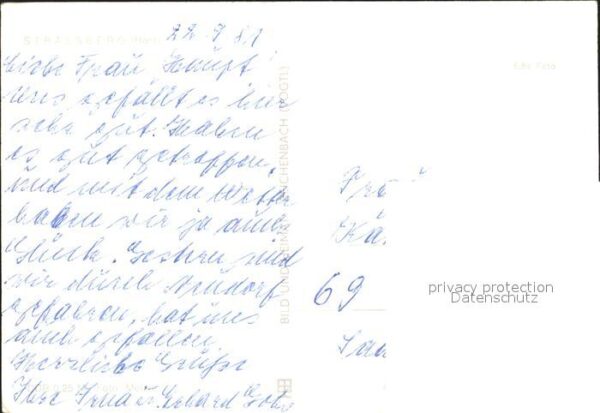 STRAUSBERG
22.9.81
Liebe Frau Haupt!
Uns gefällt es hier
sehr gut. Haben
es gut getroffen,
und mit dem Wetter
haben wir ja auch
Glück. Gestern sind
wir durch
gefahren, hat uns
auch gefallen.
Herzliche Grüße
Ihre Irma u. Gerhard
BILD UND HEIMAT REICHENBACH (VOGTL)
Echt Foto
69
privacy protection
Datenschutz